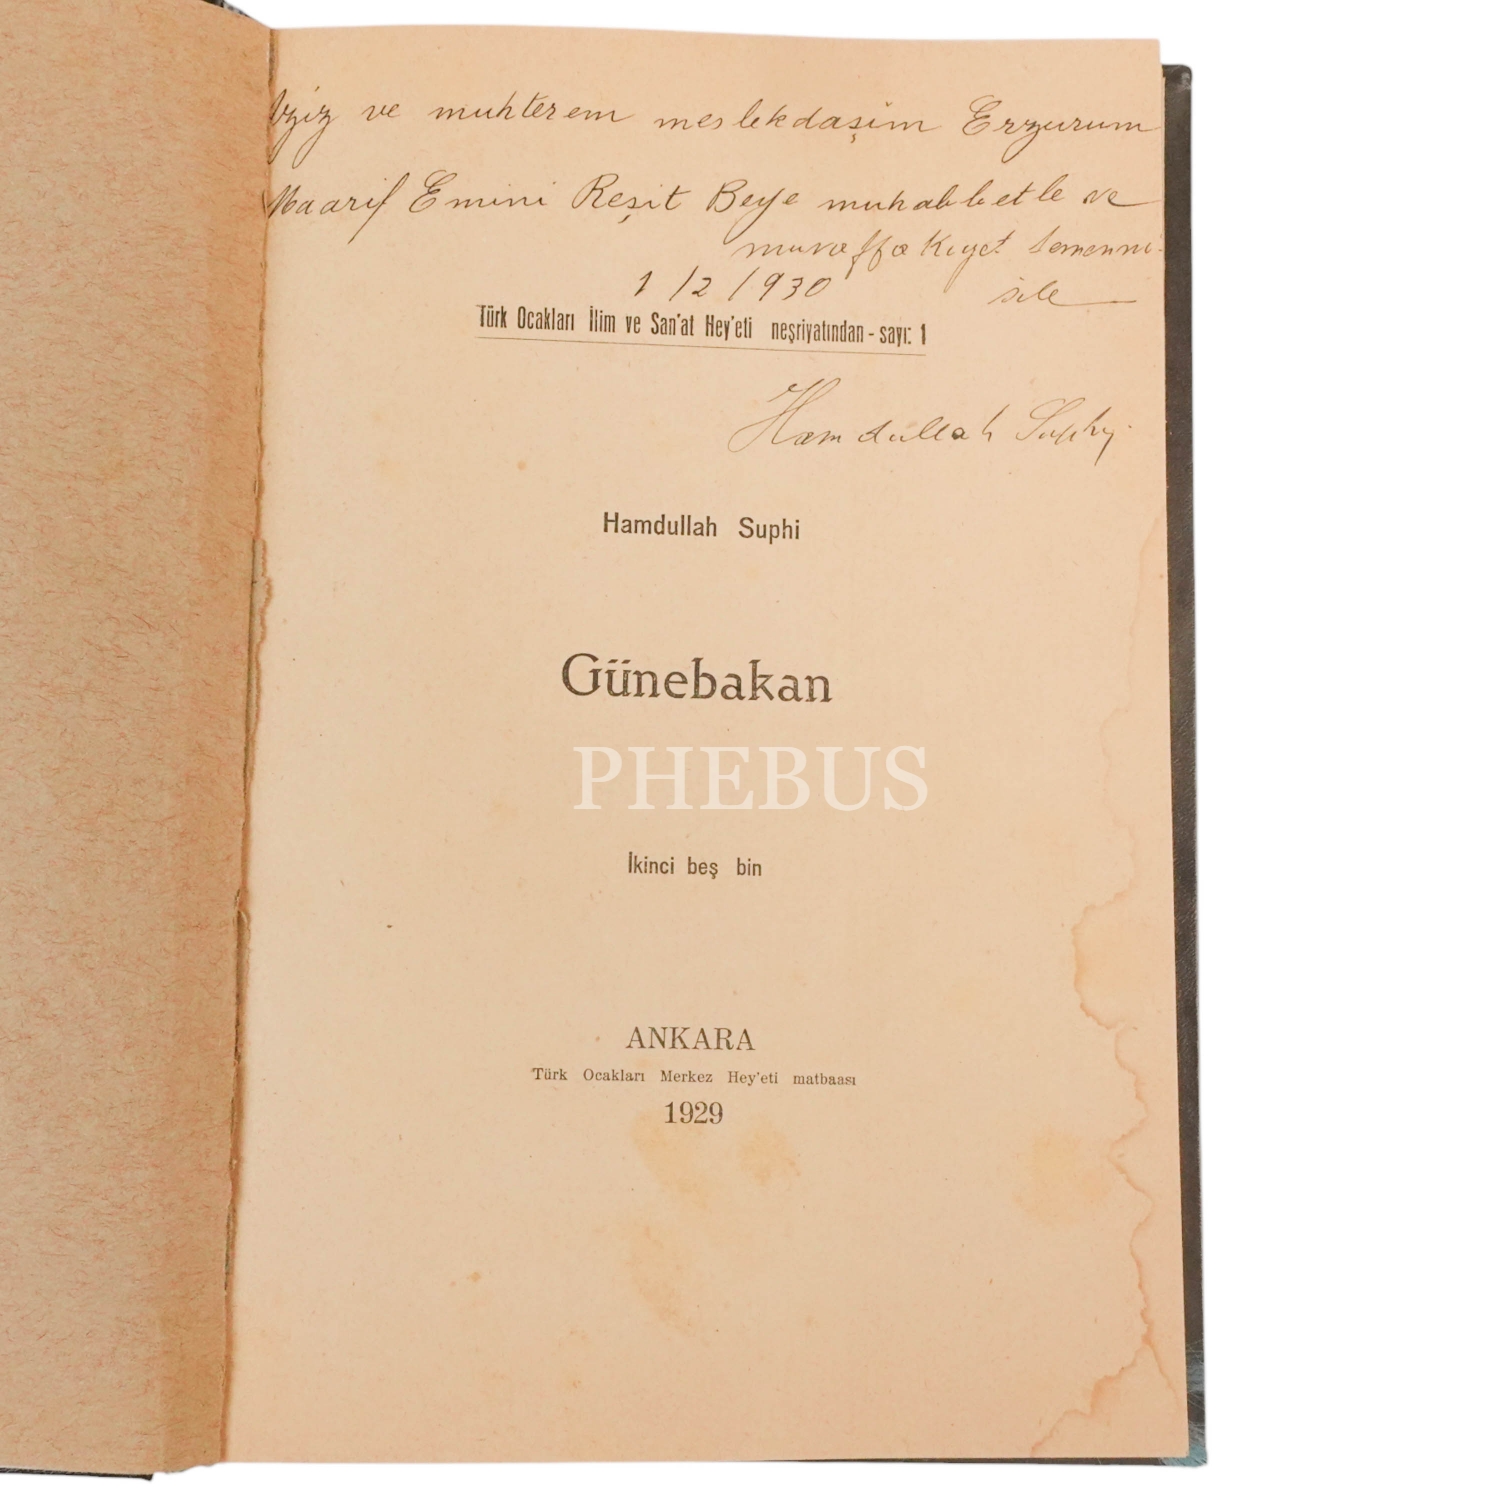 Aziz ve muhterem meslekdaşim Erzurum
Maarif Emini Reşit Beye muhabbetle ve
muvaffakıyet temenni
sile
1/2/930
Türk Ocakları İlim ve San'at Hey'eti neşriyatından - sayı: 1
Hamdullah Suphi
Hamdullah Suphi
Günebakan
PHEBUS
İkinci beş bin
ANKARA
Türk Ocakları Merkez Hey'eti matbaası
1929